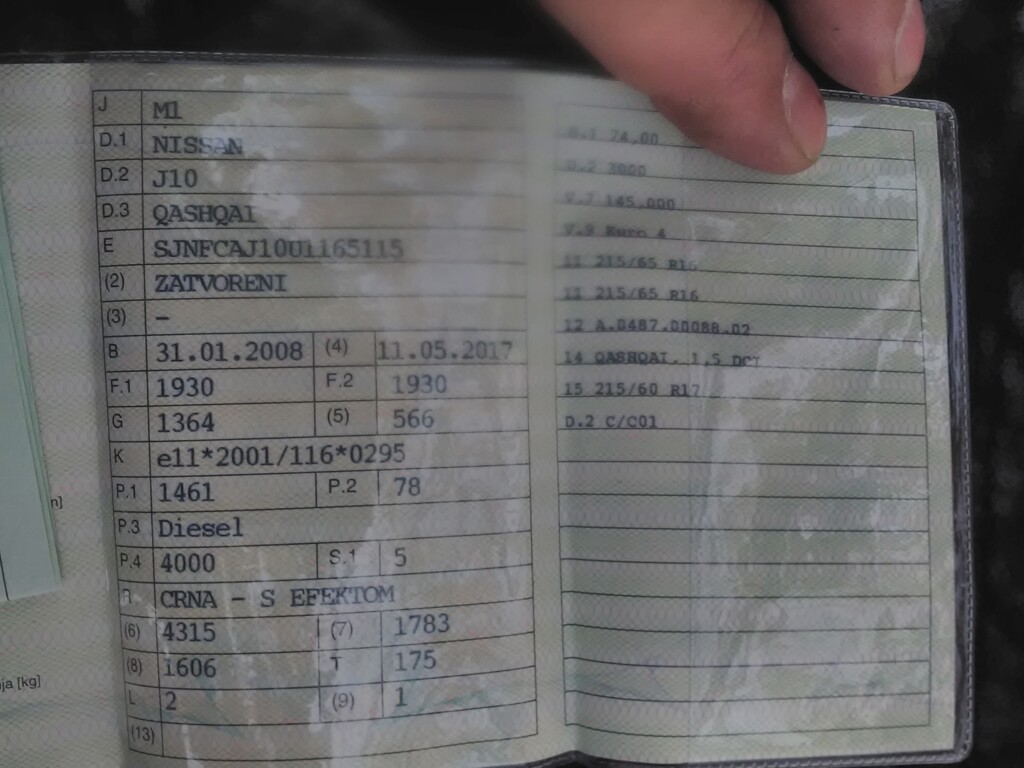 J M1
D.1 NISSAN
D.2 J10
D.3 QASHQAI
E SJNFCAJ10U1165115
(2) ZATVORENI
(3) –
B 31.01.2008 (4) 11.05.2017
F.1 1930 F.2 1930
G 1364 (5) 566
K e11*2001/116*0295
P.1 1461 P.2 78
P.3 Diesel
P.4 4000 S.1 5
R CRNA - S EFEKTOM
(6) 4315 (7) 1783
(8) 1606 T 175
L 2 (9) 1
(13)
n]
ja [kg]
U.1 74,00
U.2 3000
V.7 145,000
V.9 Euro 4
11 215/65 R16
11 215/65 R16
12 A.0487.00088.02
14 QASHQAI, 1,5 DCI
15 215/60 R17
D.2 C/C01